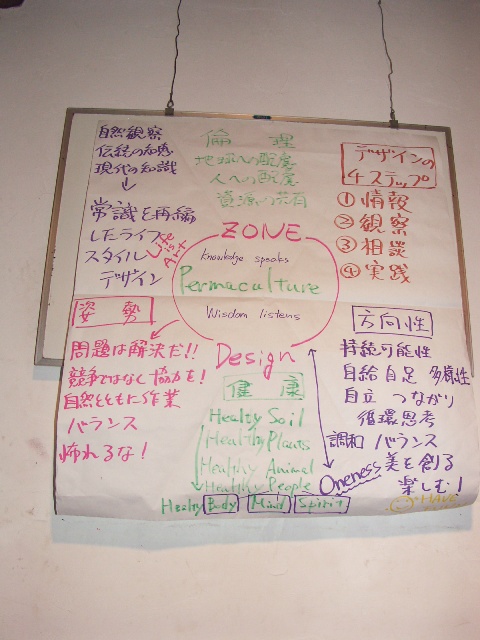 自然観察
伝統の知恵
現代の知識
↓
常識を再編
したライフ
スタイル
デザイン
倫 理
地球への配慮
人への配慮
資源の共有
デザインの
4ステップ
① 情報
② 観察
③ 相談
④ 実践
Life is Art
ZONE
Knowledge speaks
Permaculture
Wisdom listens
Design
姿 勢
問題は解決だ!!
競争ではなく協力を!
自然とともに作業
バランス
怖れるな!
健 康
Healty Soil
Healthy Plants
Healthy Animal
Healthy People
Healty Body Mind Spirit
方向性
持続可能性
自給自足 多様性
自立 つながり
循環思考
調和 バランス
Oneness 美を創る
楽しむ!